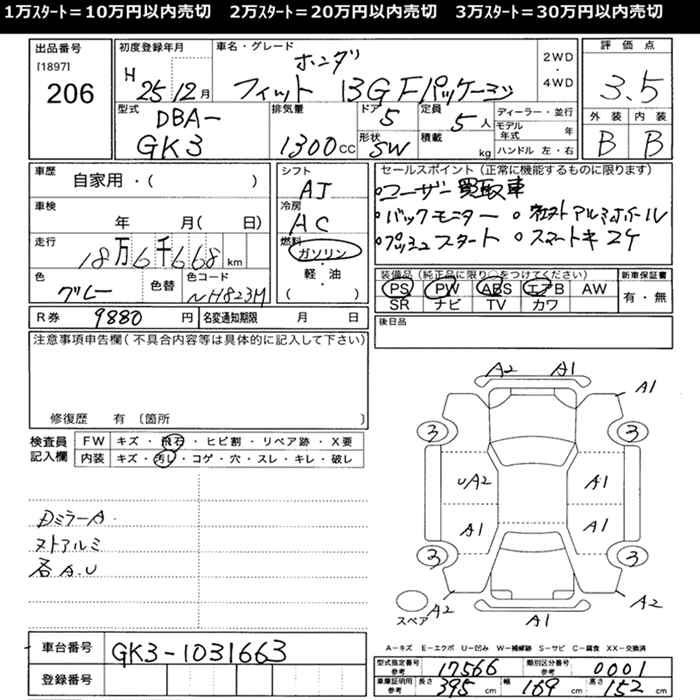 1万ｽﾀｰﾄ＝10万円以内売切　2万ｽﾀｰﾄ＝20万円以内売切　3万ｽﾀｰﾄ＝30万円以内売切
出品番号
[1897]
206
初度登録年月
H 25 12月
車名・グレード
ホンダ
フィット 13G Fパッケージ
2WD
・
4WD
評価点
3.5
外装 内装
B B
型式
DBA-
GK3
排気量
1300cc
ドア
5
形状
SW
定員
5人
積載
kg
ディーラー・並行
モデル年式 年
ハンドル 左・右
車歴
自家用・( )
車検
年 月( 日)
走行
18万6千668km
色
グレー
色替
色コード
NH823M
シフト
AT
冷房
AC
燃料
ガソリン
・
軽・油
( )
セールスポイント(正常に機能するものに限ります)
・ユーザー買取車
・バックモニター ・社外アルミホイール
・プッシュスタート ・スマートキー2ケ
装備品(純正品に限り○をつけてください)
PS PW ABS エアB AW
SR ナビ TV カワ
新車保証書
有・無
R券 9880円
名変通知期限 月 日
後日品
注意事項申告欄(不具合内容等は具体的に記入して下さい)
修復歴 有 〔箇所 〕
検査員
記入欄
FW キズ・飛石・ヒビ割・リペア跡・X要
内装 キズ・汚レ・コゲ・穴・スレ・キレ・破レ
ミラーA
アルミ
各A.U
A2 A1
A1
3 3
UA2 A1
A1 A1
3 3
スペア
A2 A1 A2
車台番号 GK3-1031663
登録番号
A－キズ E－エクボ U－凹み W－補修跡 S－サビ C－腐食 XX－交換済
型式指定番号 参考 17566
類別区分番号 参考 0001
車庫証明用 参考 長さ 395cm 幅 169cm 高さ 152cm